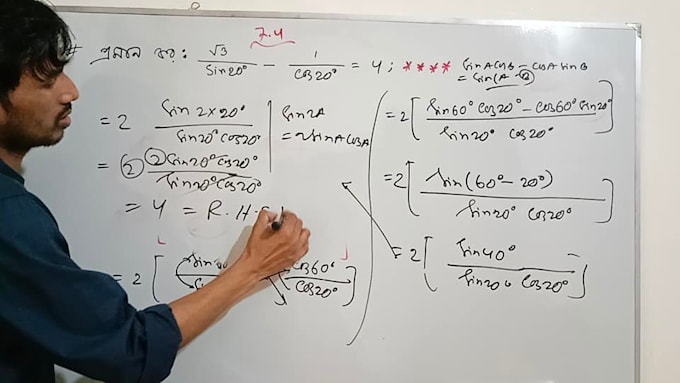 7.4
# প্রমাণ কর: √3/Sin20° - 1/Cos20° = 4 ; ****
SinA CosB - CosA SinB
= Sin(A - B)
= 2 Sin 2×20°/Sin20° Cos20°
Sin2A
= 2SinA CosA
= 2 2 Sin20° Cos20°/Sin20° Cos20°
= 4 = R.H.S
= 2 [ Cos60°/Cos20° ]
= 2 [ Sin60° Cos20° - Cos60° Sin20°/Sin20° Cos20° ]
= 2 [ Sin(60° - 20°)/Sin20° Cos20° ]
= 2 [ Sin40°/Sin20° Cos20° ]